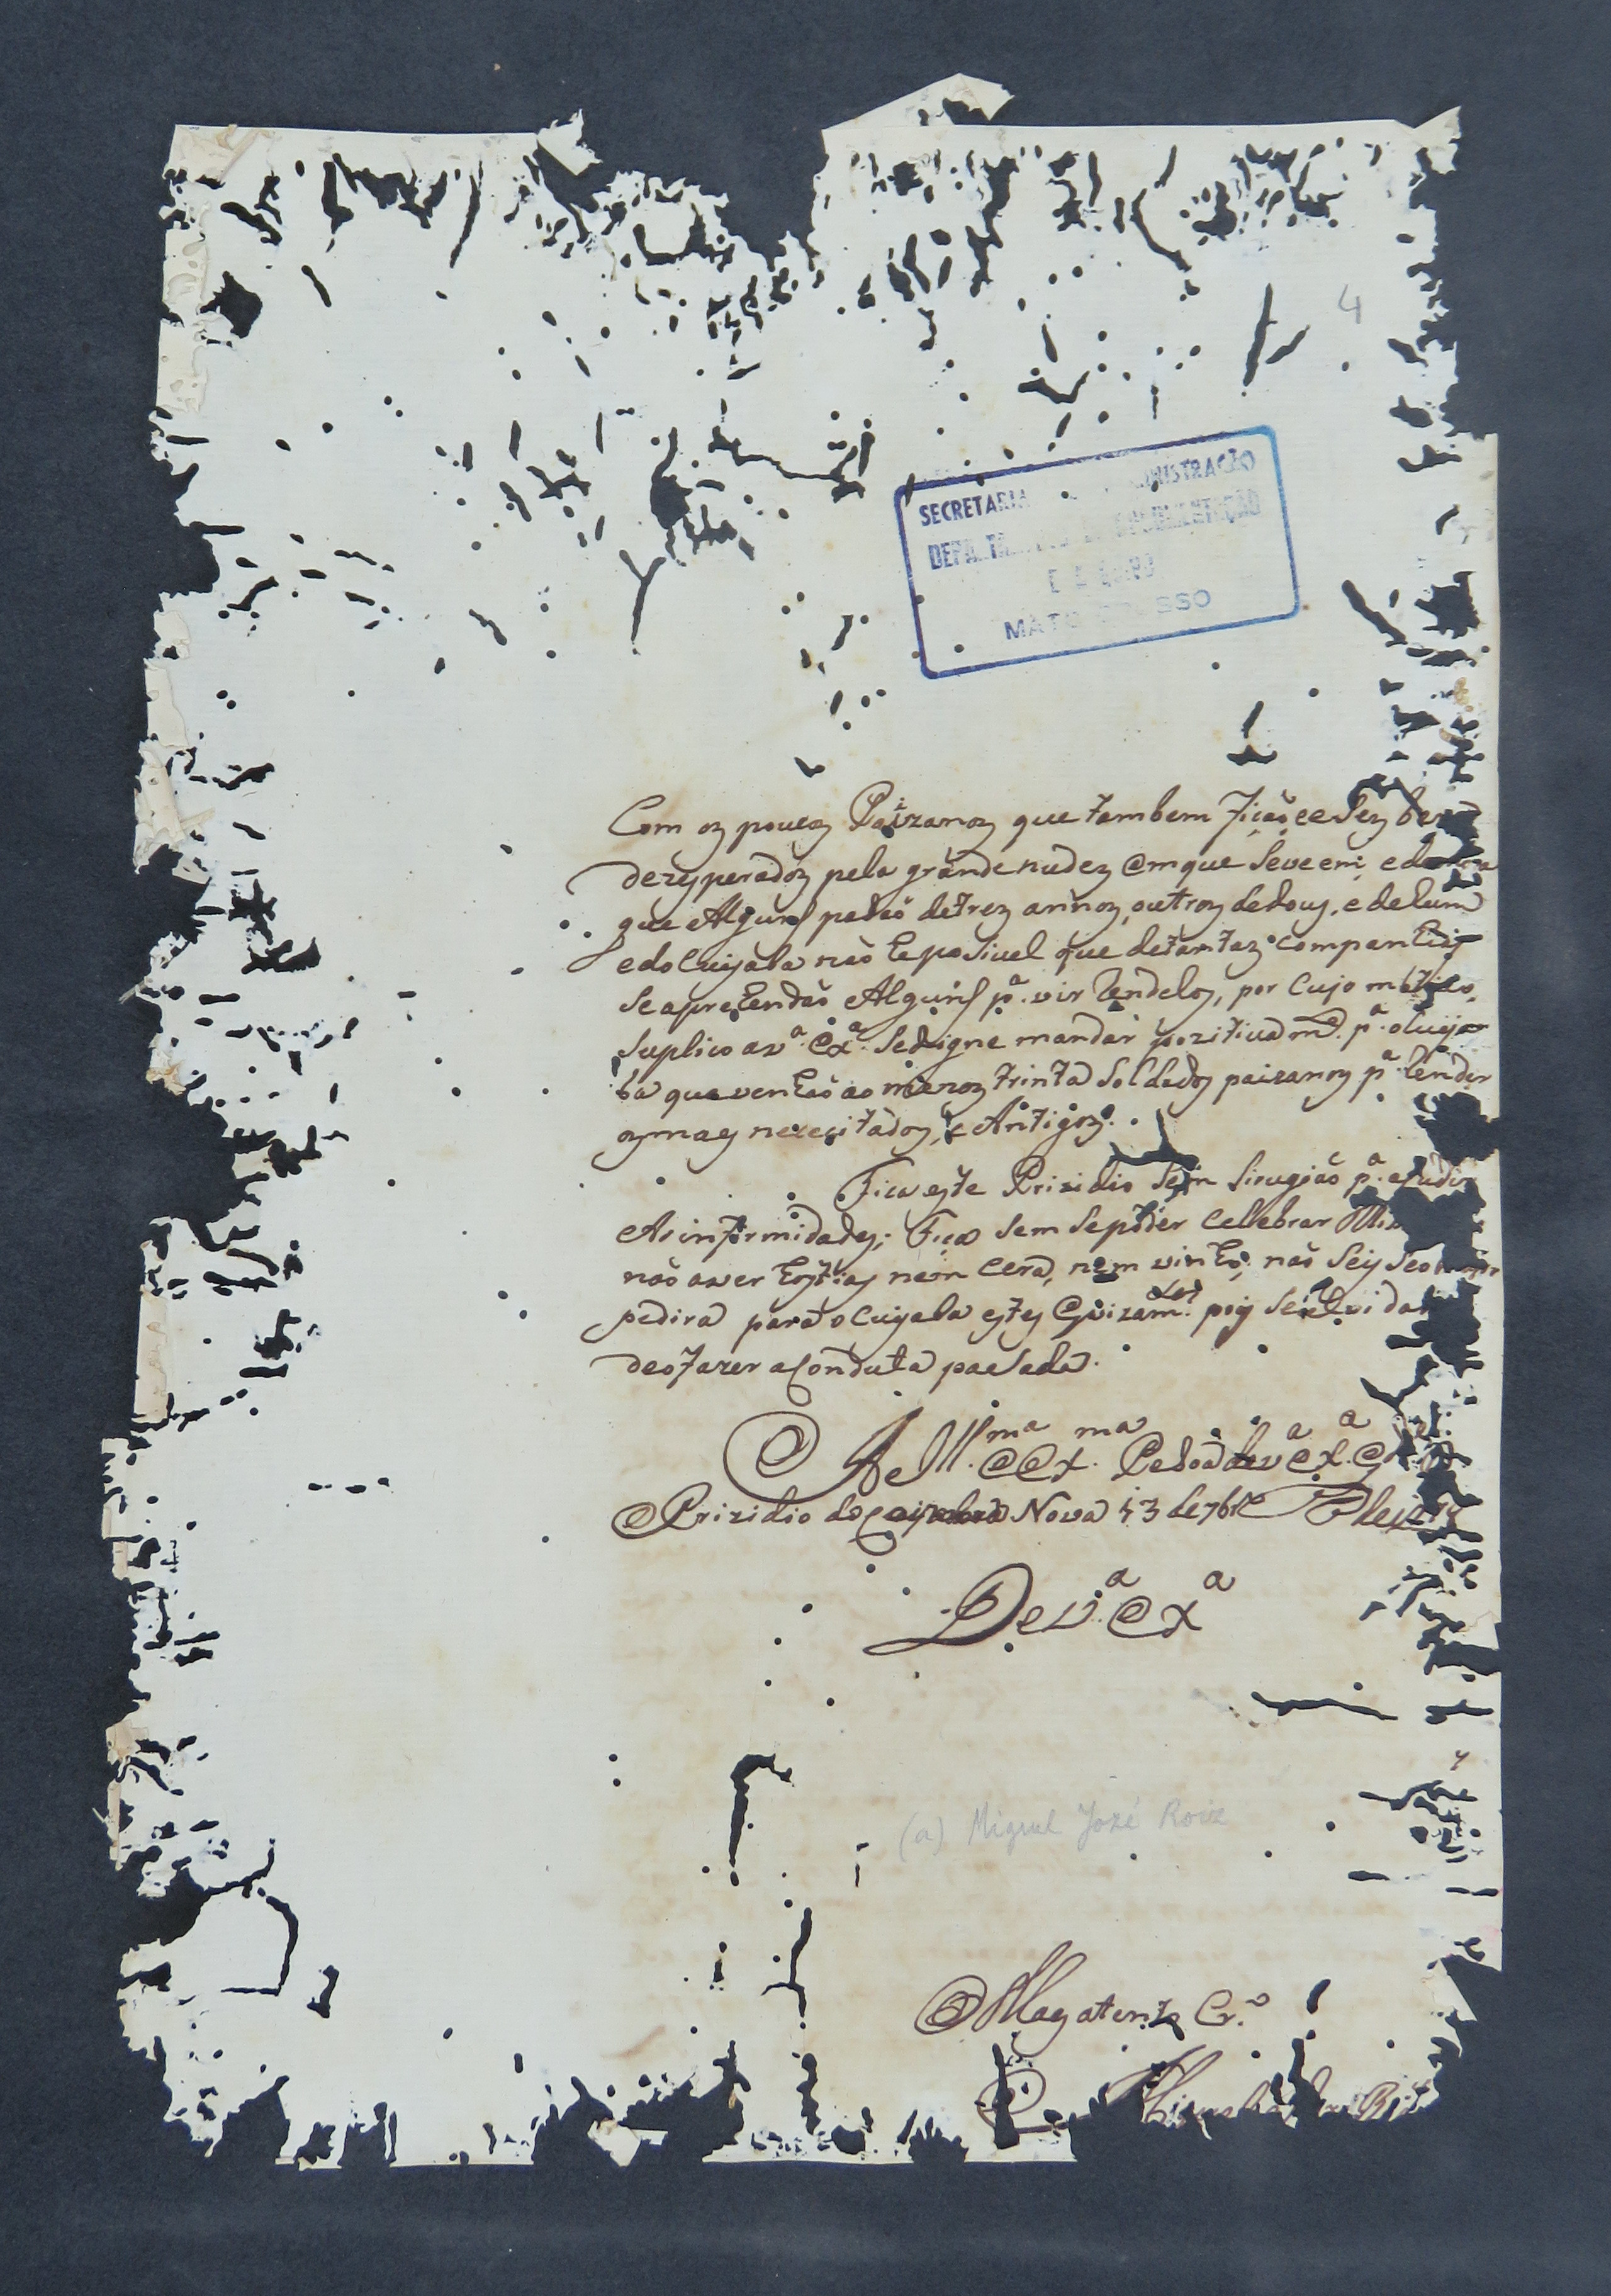 4
SECRETARIA ADMINISTRAÇÃO
DOCUMENTAÇÃO
MATO GROSSO
Com os poucos Paizanos que tambem ficaõ e
dezesperados pela grande nudez Emque seveem, e
que Alguns padeó detres annos, outros dedous, e de hum
edo Cuyaba naõ he posivel que detantas companhias
Se aprehendaõ Alguns p.ª vir Rendelos, por Cujo motivo
Suplico av.ª Ex.ª Sedigne mandar pozitivam.e p.ª oCuya
ba que venhaõ ao menos trinta Soldados paizanos p.ª Render
os mais necesitados, e Antigos.
Fica este Prizidio Sem Sirugiaõ p.ª acudir
As infirmidades; Fica sem Sepoder Cellebrar Missa
não aver hostias nem Cera, nem vinho; naõ Sey se
pedira para o Cuyaba estes Avizam.tos pois
deofazer aConduta pasada.
A Ill.ma e Ex.ma Pesoa de v.ª Ex.ª G.
Prizidio de Coimbra Nova 13 de 7br.o
De V.ª Ex.ª
(a) Miguel José Roiz
Mais atento Cr.o